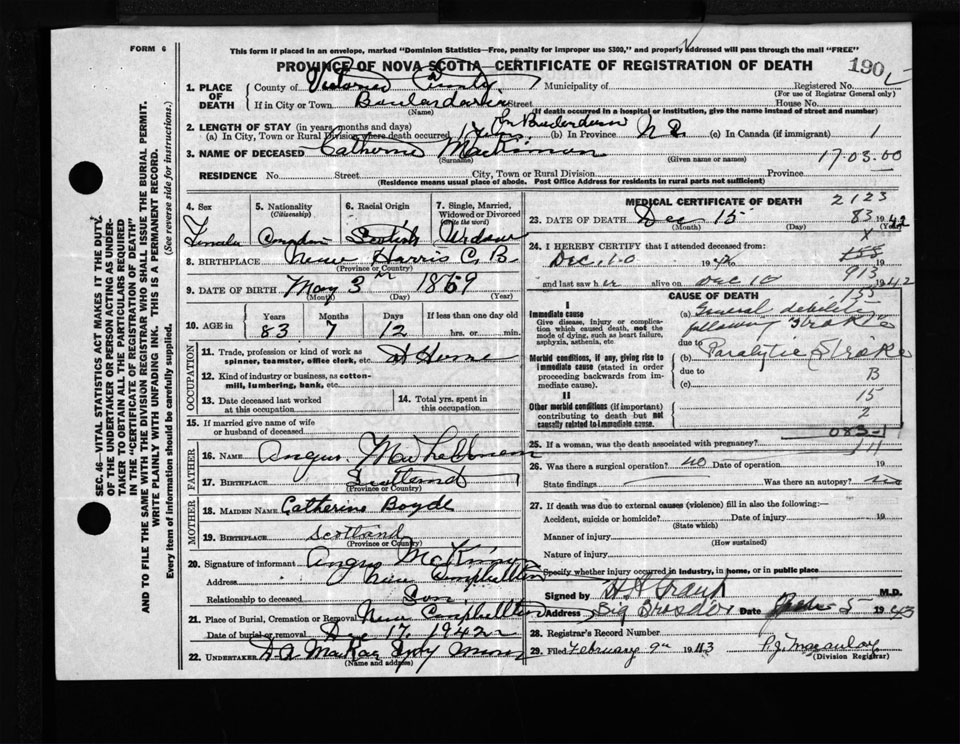 FORM 6
This form if placed in an envelope, marked "Dominion Statistics—Free, penalty for improper use $300," and properly addressed will pass through the mail "FREE"
PROVINCE OF NOVA SCOTIA—CERTIFICATE OF REGISTRATION OF DEATH
190
1. PLACE OF DEATH
County of Victoria County Municipality of Registered No.
(For use of Registrar General only)
If in City or Town Boulardarie Street House No.
(Name) (If death occurred in a hospital or institution, give the name instead of street and number)
2. LENGTH OF STAY (in years months and days)
(a) In City, Town or Rural Division where death occurred (b) In Province N S (c) In Canada (if immigrant)
3. NAME OF DECEASED Catherine MacKinnon
(Surname) (Given name or names)
17.03.00
RESIDENCE No. Street City, Town or Rural Division Province
(Residence means usual place of abode. Post Office Address for residents in rural parts not sufficient)
4. Sex
Female
5. Nationality
(Citizenship)
Canadian
6. Racial Origin
Scotish
7. Single, Married, Widowed or Divorced
(write the word)
8. BIRTHPLACE New Harris C. B.
(Province or Country)
9. DATE OF BIRTH May 3 1859
(Month) (Day) (Year)
10. AGE in
Years Months Days If less than one day old
83 7 12 hrs. or min.
OCCUPATION
11. Trade, profession or kind of work as spinner, teamster, office clerk, etc.
12. Kind of industry or business, as cotton-mill, lumbering, bank, etc.
13. Date deceased last worked at this occupation
14. Total yrs. spent in this occupation
15. If married give name of wife or husband of deceased
FATHER
16. NAME Angus
17. BIRTHPLACE Scotland
(Province or Country)
MOTHER
18. MAIDEN NAME Catherine Boyde
19. BIRTHPLACE Scotland
(Province or Country)
20. Signature of informant Angus McKinnon
Address New Campbellton
Relationship to deceased Son
21. Place of Burial, Cremation or Removal New Campbellton
Date of burial or removal Dec 17, 1942
22. UNDERTAKER D A MacKay Sydy Mines
(Name and address)
MEDICAL CERTIFICATE OF DEATH
2123
23. DATE OF DEATH Dec 15 1942
(Month) (Day) (Year)
83
24. I HEREBY CERTIFY that I attended deceased from:
Dec. 10 19
913
and last saw her alive on Dec 10 1942
CAUSE OF DEATH
155
I
Immediate cause
Give disease, injury or complication which caused death, not the mode of dying, such as heart failure, asphyxia, asthenia, etc.
(a) General debility
following Stroke
due to
Morbid conditions, if any, giving rise to immediate cause (stated in order proceeding backwards from immediate cause).
(b) Paralytic Stroke
due to B
(c)
II
Other morbid conditions (if important) contributing to death but not causally related to immediate cause.
15
2
083-1
25. If a woman, was the death associated with pregnancy?
26. Was there a surgical operation? no Date of operation 19
State findings Was there an autopsy? no
27. If death was due to external causes (violence) fill in also the following:—
Accident, suicide or homicide? Date of injury 19
(State which)
Manner of injury
(How sustained)
Nature of injury
Specify whether injury occurred in industry, in home, or in public place
Signed by M.D.
Address Date 5 1943
28. Registrar's Record Number
29. Filed February 9th 1943
(Division Registrar)
SEC. 46—VITAL STATISTICS ACT MAKES IT THE DUTY OF THE UNDERTAKER OR PERSON ACTING AS UNDERTAKER TO OBTAIN ALL THE PARTICULARS REQUIRED IN THE "CERTIFICATE OF REGISTRATION OF DEATH" AND TO FILE THE SAME WITH THE DIVISION REGISTRAR WHO SHALL ISSUE THE BURIAL PERMIT.
WRITE PLAINLY WITH UNFADING INK. THIS IS A PERMANENT RECORD.
Every item of information should be carefully supplied.
(See reverse side for instructions.)